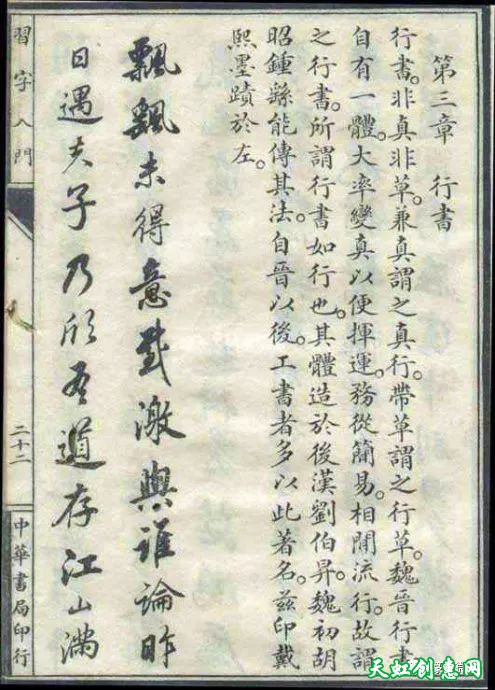 第三章　行書
行書。非真非草。兼真謂之真行。帶草謂之行草。魏晉行書
自有一體。大率變真以便揮運。務從簡易。相間流行。故謂
之行書。所謂行書如行也。其體造於後漢劉伯昇。魏初胡
昭鍾繇能傳其法。自晉以後。工書者多以此著名。茲印戴
熙墨蹟於左。
飄飄未得意感激與誰論昨
日遇夫子乃欣吾道存江山滿
習字入門
二十二
中華書局印行
天虹创意网